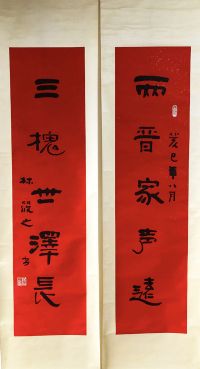 兩晉家声遠
癸巳年八月
三槐世澤長
林筱之書